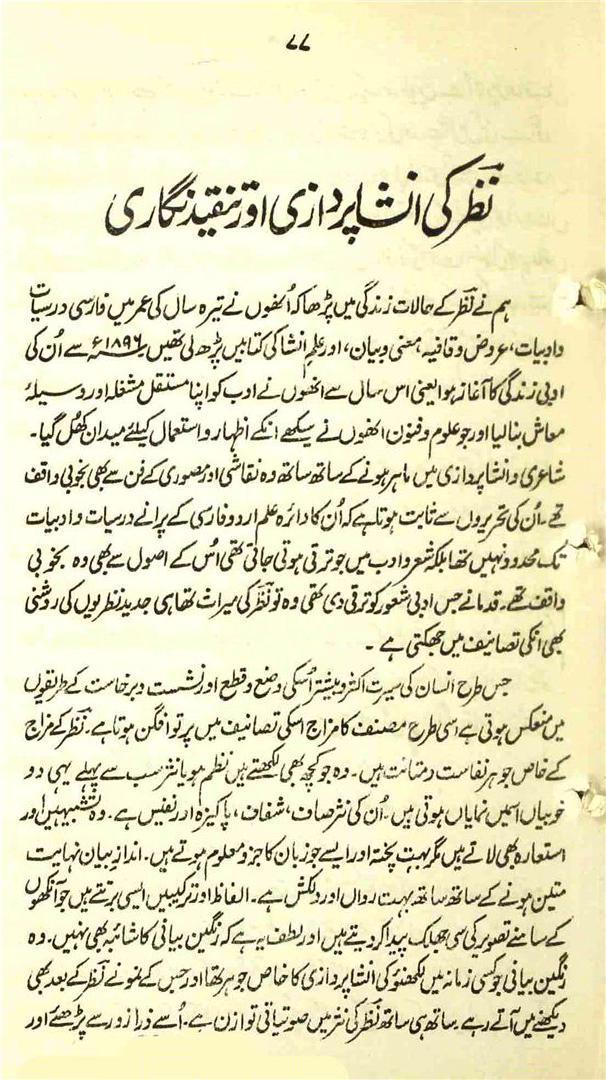 ۷۷
نظرؔ کی انشا پردازی اور تنقید نگاری
ہم نے نظرؔ کے حالات زندگی میں پڑھا کہ اُنھوں نے تیرہ سال کی عمر میں فارسی درسیات
و ادبیات، عروض و قافیہ معنی و بیان، اور علم انشا کی کتابیں پڑھ لی تھیں ۱۸۹۶ء سے اُن کی
ادبی زندگی کا آغاز ہوا یعنی اس سال سے انھوں نے ادب کو اپنا مستقل مشغلہ اور وسیلۂ
معاش بنا لیا اور جو علوم و فنون انھوں نے سیکھے انکے اظہار و استعمال کیلئے میدان کھُل گیا۔
شاعری و انشا پردازی میں ماہر ہونے کے ساتھ ساتھ وہ نقاشی اور مصوری کے فن سے بھی بخوبی واقف
تھے۔ اُن کی تحریروں سے ثابت ہوتا ہے کہ اُن کا دائرہ علم اردو فارسی کے پرانے درسیات و ادبیات
تک محدود نہیں تھا بلکہ شعر و ادب میں جو ترقی ہوتی جاتی تھی اُس کے اصول سے بھی وہ بخوبی
واقف تھے۔ قدما نے جس ادبی شعور کو ترقی دی تھی وہ تو نظرؔ کی میراث تھا ہی جدید نظریوں کی روشنی
بھی انکی تصانیف میں جھلکتی ہے ۔
جس طرح انسان کی سیرت اکثر و بیشتر اُسکی وضع و قطع اور نشست و برخاست کے طریقوں
میں منعکس ہوتی ہے اسی طرح مصنف کا مزاج اسکی تصانیف میں پرتو افگن ہوتا ہے۔ نظرؔ کے مزاج
کے خاص جوہر نفاست و متانت ہیں۔ وہ جو کچھ بھی لکھتے ہیں نظم ہو یا نثر سب سے پہلے یہی دو
خوبیاں اسمیں نمایاں ہوتی ہیں۔ اُن کی نثر صاف، شفاف، پاکیزہ اور نفیس ہے۔ وہ تشبیہیں اور
استعارہ بھی لاتے ہیں مگر بہت پختہ اور ایسے جو زبان کا جزو معلوم ہوتے ہیں۔ انداز بیان نہایت
متین ہونے کے ساتھ ساتھ بہت رواں اور دلکش ہے۔ الفاظ اور ترکیبیں ایسی برتتے ہیں جو آنکھوں
کے سامنے تصویر کی سی جھلک پیدا کر دیتے ہیں اور لطف یہ ہے کہ رنگین بیانی کا شائبہ بھی نہیں۔ وہ
رنگین بیانی جو کسی زمانہ میں لکھنؤ کی انشا پردازی کا خاص جوہر تھا اور جس کے نمونے نظرؔ کے بعد بھی
دیکھنے میں آتے رہے۔ ساتھ ہی ساتھ نظرؔ کی نثر میں صوتیاتی توازن ہے۔ اُسے ذرا زور سے پڑھئے اور